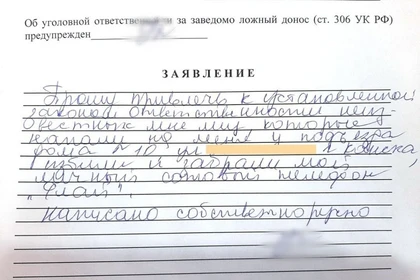 Об уголовной ответственности за заведомо ложный донос (ст. 306 УК РФ)
предупрежден
ЗАЯВЛЕНИЕ
Прошу привлечь к установленной
законом ответственности неиз-
вестных мне лиц которые
напали на меня у подъезда
дома № 10 ул. г. Канска
избили и забрали мой
личный сотовый телефон
"Флай".
написано собственноручно